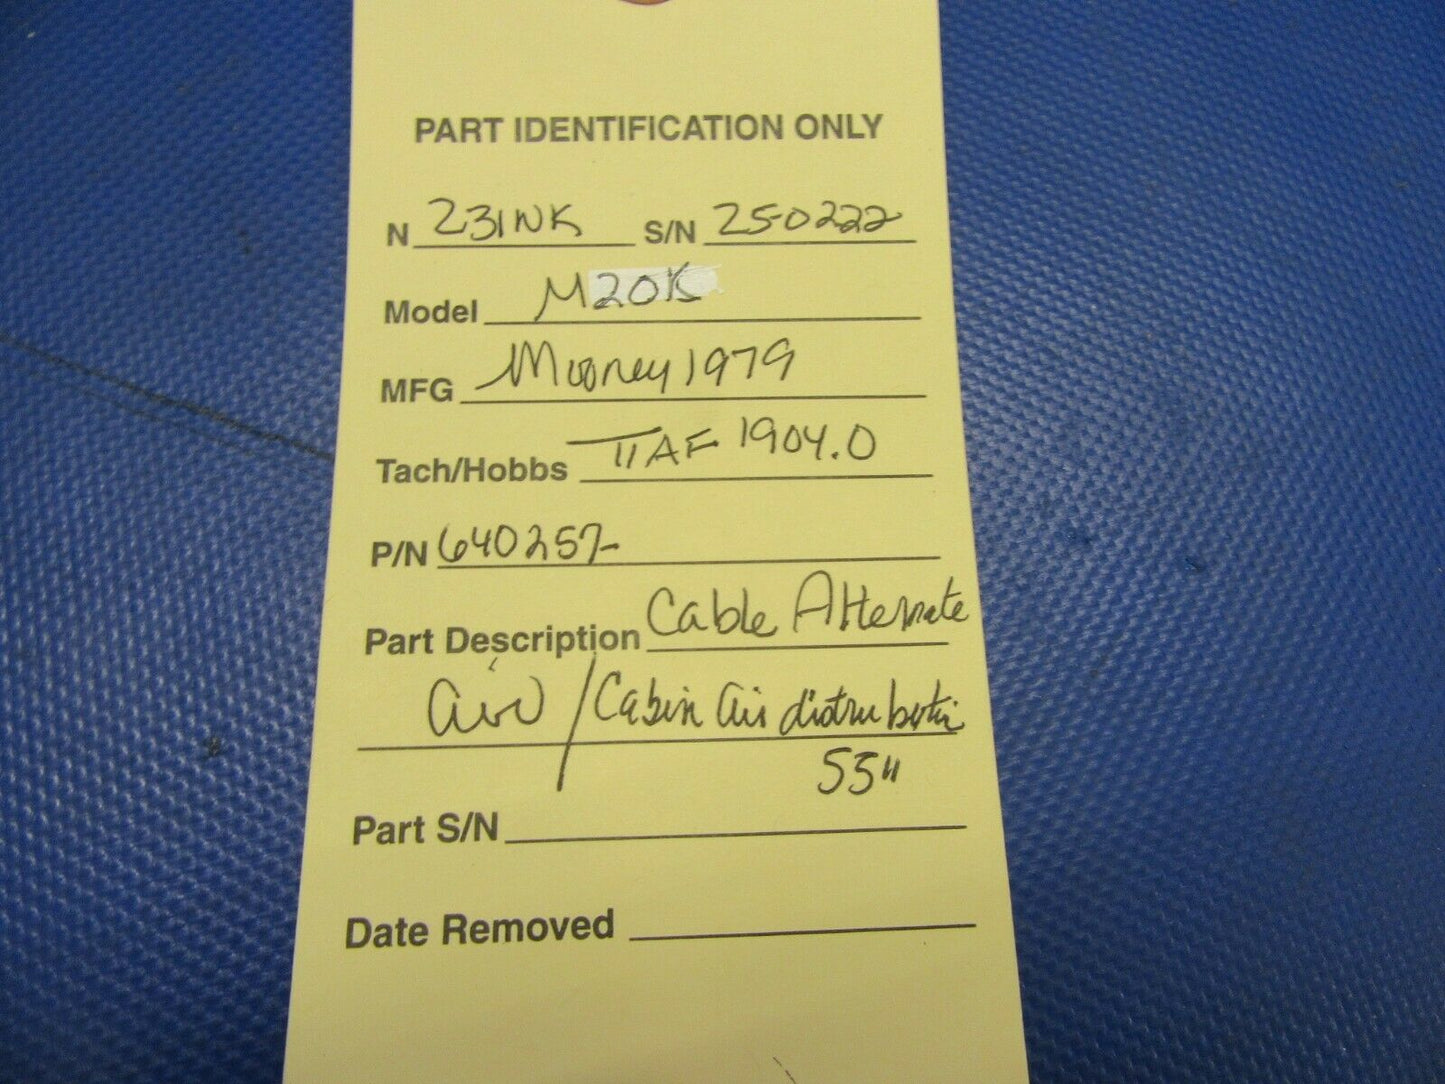 PART IDENTIFICATION ONLY
N 231NK S/N 25-0222
Model M20K
MFG Mooney 1979
Tach/Hobbs TTAF 1904.0
P/N 640257-
Part Description Cable Alternate
air / Cabin air distributi
53"
Part S/N
Date Removed